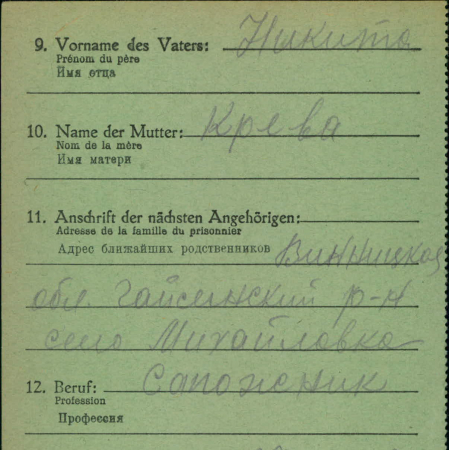 9. Vorname des Vaters: Никита
Prénom du père
Имя отца
10. Name der Mutter: Крева
Nom de la mère
Имя матери
11. Anschrift der nächsten Angehörigen:
Adresse de la famille du prisonnier
Адрес ближайших родственников Винницкая
обл. Гайсенский р-н
село Михайловка
12. Beruf: Сапожник
Profession
Профессия